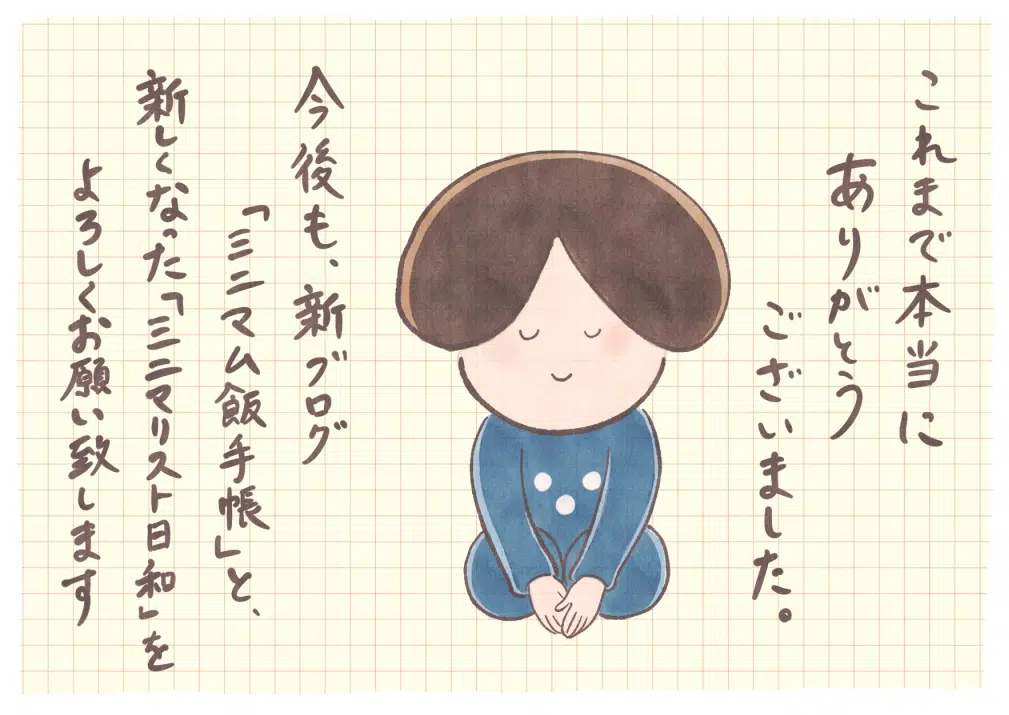 これまで本当に
ありがとう
ございました。
今後も、新ブログ
「ミニマム飯手帳」と、
新しくなった「ミニマリスト日和」を
よろしくお願い致します